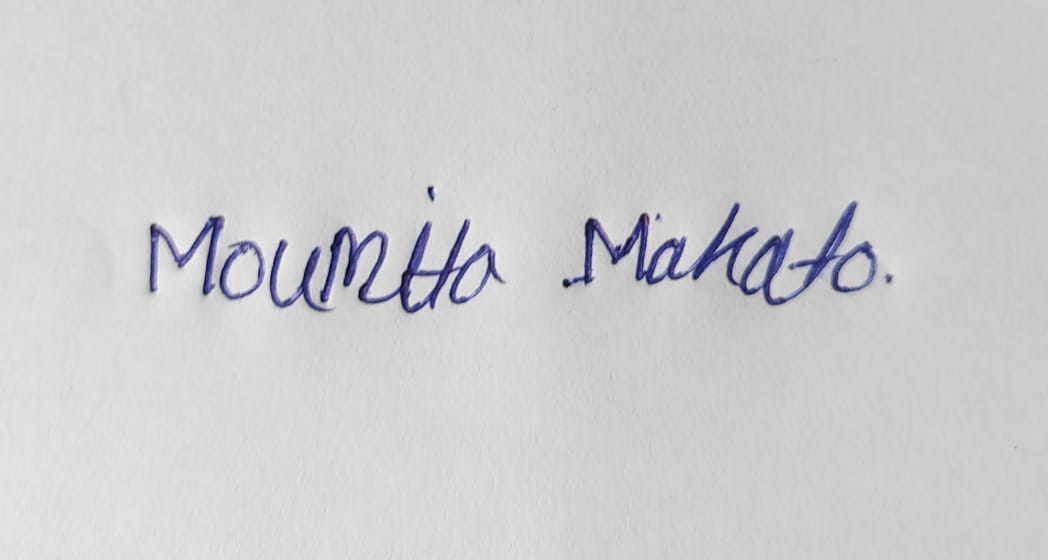 Moumita Makato.